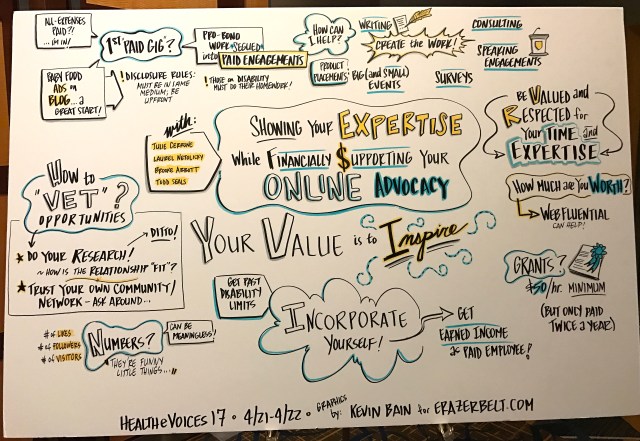 ALL-EXPENSES
PAID?!
...I'M IN!
1ST 'PAID GIG'?
BABY FOOD
ADS on
BLOG... a
GREAT START!
! DISCLOSURE RULES:
MUST BE IN SAME
MEDIUM; BE
UPFRONT
PRO-BONO
WORK "SEGUED"
into PAID ENGAGEMENTS
! THOSE on DISABILITY
MUST DO THEIR HOMEWORK!
HOW CAN
I HELP?
PRODUCT
PLACEMENTS
WRITING
CREATE the WORK!
BIG (and SMALL)
EVENTS
SURVEYS
CONSULTING
SPEAKING
ENGAGEMENTS
with:
JULIE CERRONE
LAUREL NETOLICKY
BROOKE ABBOTT
TODD SEALS
SHOWING YOUR EXPERTISE
WHILE FINANCIALLY $UPPORTING YOUR
ONLINE ADVOCACY
BE VALUED and
RESPECTED for
YOUR TIME and
EXPERTISE
HOW MUCH are YOU WORTH?
WEBFLUENTIAL
CAN HELP!
HOW to
"VET"?
OPPORTUNITIES
DITTO!
DO YOUR RESEARCH!
~ HOW IS the RELATIONSHIP "FIT"?
TRUST YOUR OWN COMMUNITY/
NETWORK - ASK AROUND...
YOUR VALUE is to Inspire
GRANTS?
$50/hr. MINIMUM
(BUT ONLY PAID
TWICE a YEAR)
GET PAST
DISABILITY
LIMITS
INCORPORATE
YOURSELF!
GET
EARNED INCOME
as PAID EMPLOYEE!
# of LIKES
# of FOLLOWERS
# of VISITORS
NUMBERS?
CAN BE
MEANINGLESS!
"THEY'RE FUNNY
LITTLE THINGS..."
HEALTHeVOICES 17 • 4/21-4/22 • GRAPHICS by: KEVIN BAIN for ERAZERBELT.COM